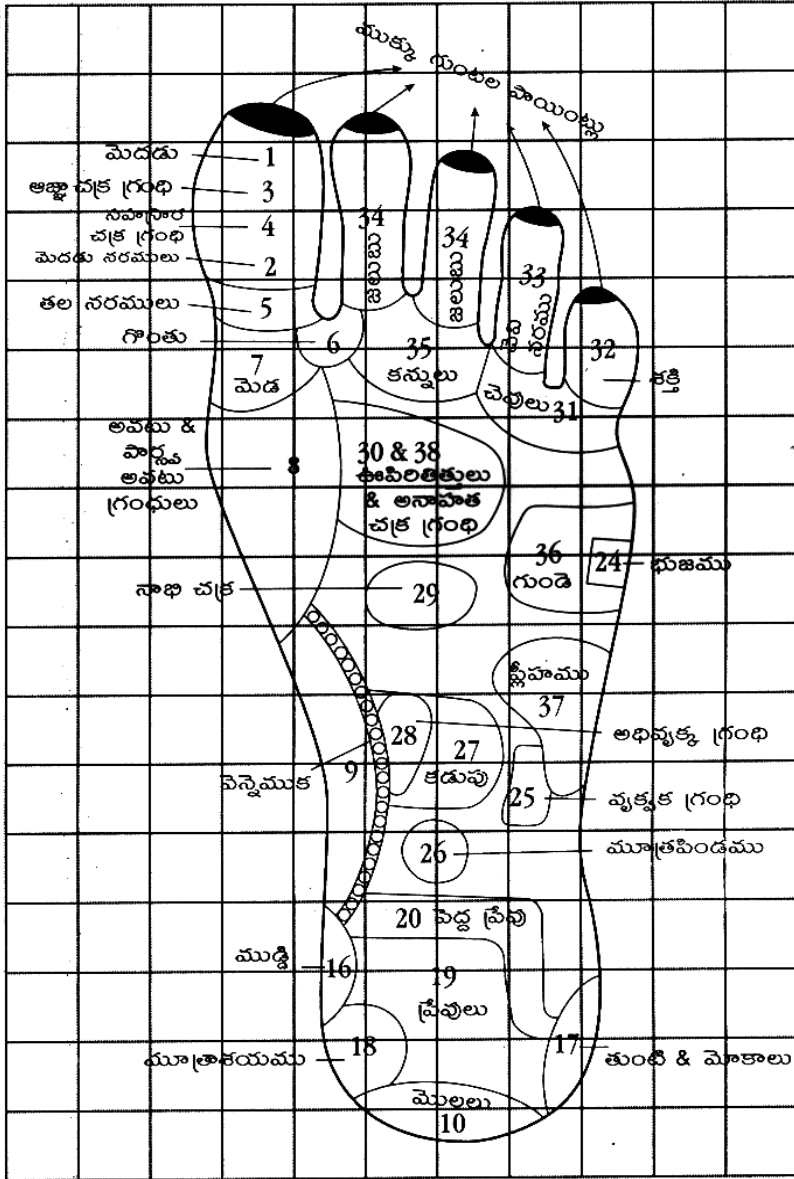 ముక్కు గుంటల పాయింట్లు
మెదడు 1
ఆజ్ఞా చక్ర గ్రంధి 3
సహస్రార
చక్ర గ్రంధి 4
మెదడు నరములు 2
తల నరములు 5
గొంతు 6
7
మెడ
34
34
33
32
శక్తి
35
కన్నులు
చెవులు 31
అవటు &
పార్శ్వ
అవటు
గ్రంధులు
8
30 & 38
ఊపిరితిత్తులు
& అనాహత
చక్ర గ్రంధి
36
గుండె
24 భుజము
నాభి చక్ర 29
ప్లీహము
37
28 అధివృక్క గ్రంధి
27
కడుపు
వెన్నెముక 9
25 వృక్వక గ్రంధి
26 మూత్రపిండము
20 పెద్ద ప్రేవు
ముడ్డి 16
19
ప్రేవులు
మూత్రాశయము 18
17 తుంటి & మోకాలు
మొలలు
10